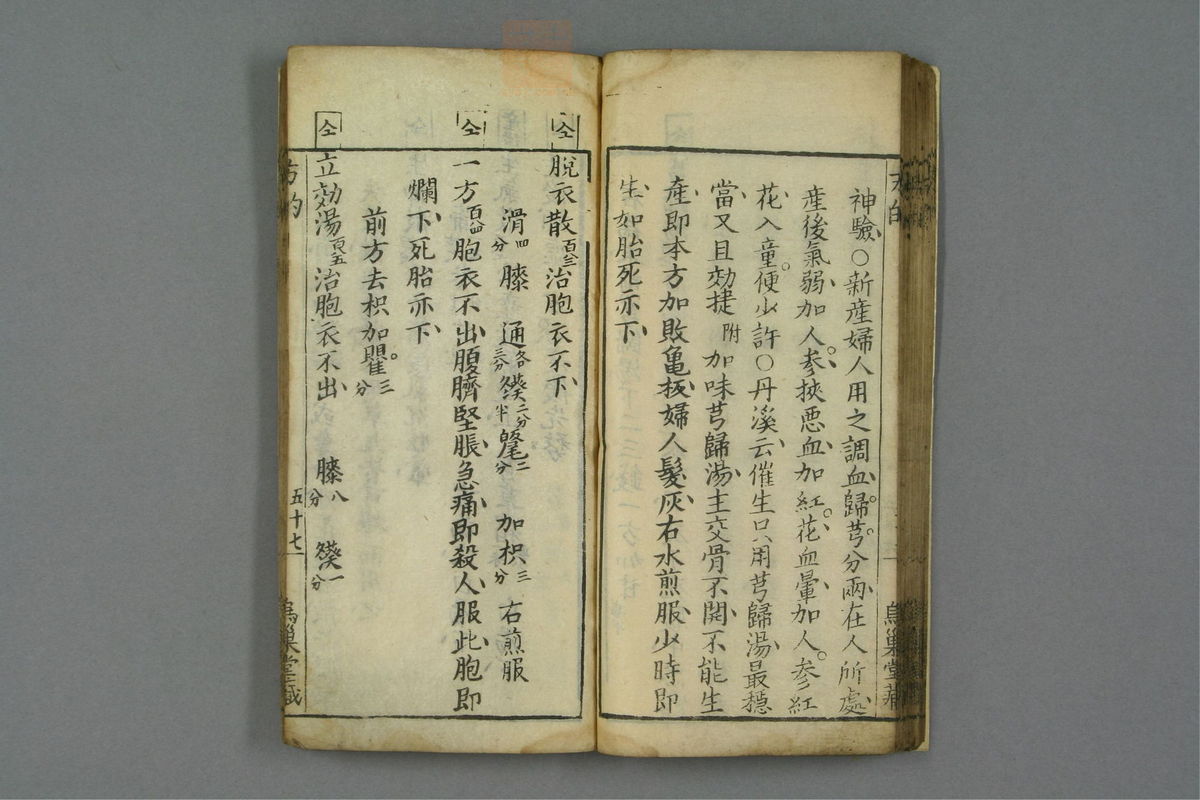 神驗○新產婦人用之調血歸芎分兩在人所處
產後氣弱加人參挾惡血加紅花血暈加人參紅
花入童便少許○丹溪云催生只用芎歸湯最穩
當又且効捷附加味芎歸湯主交骨不開不能生
產即本方加敗亀板婦人髮灰右水煎服少時即
生如胎死亦下
仝
脫衣散百三治胞衣不下
滑四分膝通各三分二分半二分加枳三分右煎服
仝
一方百四胞衣不出腹臍堅脹急痛即殺人服此胞即
爛下死胎亦下
前方去枳加瞿三分
仝
立効湯百五治胞衣不出膝八分一分
方的
五十七
烏巢堂藏